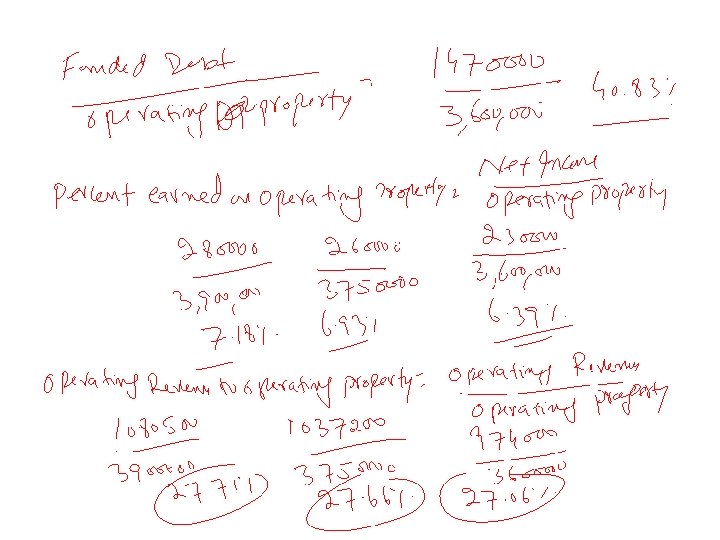 Funded Debt / operating property = 1470000 / 3,600,000 40.83%
Percent earned on operating property = Net Income / operating property
280000 260000 230000
3,900,000 3750000 3,600,000
7.18% 6.93% 6.39%
operating Revenue to operating property = operating Revenue / operating property
1080500 1037200 974000
3900000 3750000 3600000
27.71% 27.66% 27.06%